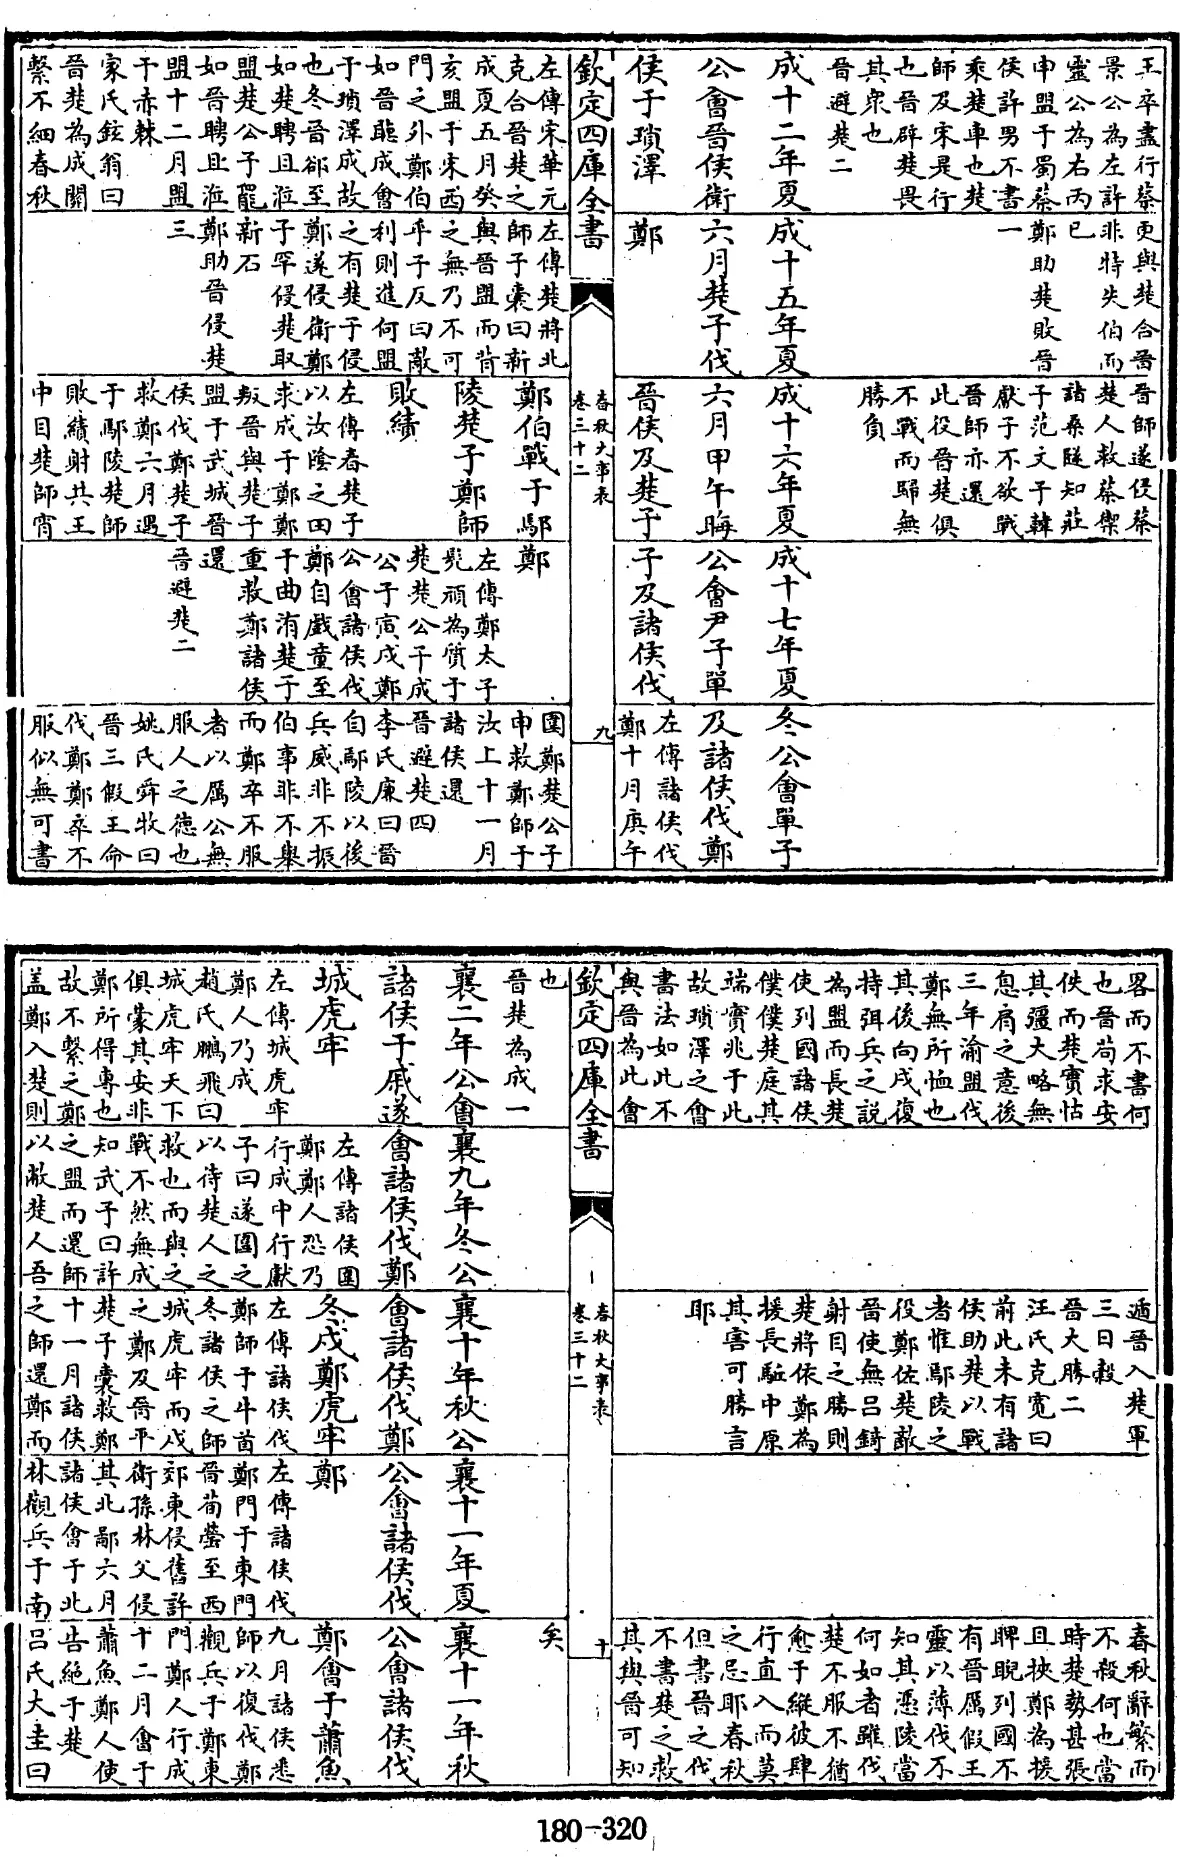 王卒盡行蔡
景公為左許
靈公為右丙
申盟于蜀蔡
侯許男不書
乘楚車也楚
師及宋是行
也晉辟楚畏
其衆也
晉避楚二
成十二年夏
公會晉侯衛
侯于瑣澤
更與楚合晉
非特失伯而
已
鄭助楚敗晉
一
成十五年夏
六月楚子伐
鄭
晉師遂侵蔡
楚人救蔡禦
諸桑隧知莊
子范文子韓
獻子不欲戰
晉師亦還
此役晉楚俱
不戰而歸無
勝負
成十六年夏
六月甲午晦
晉侯及楚子
成十七年夏
公會尹子單
子及諸侯伐
冬公會單子
及諸侯伐鄭
左傳諸侯伐
鄭十月庚午
欽定四庫全書
春秋大事表
卷三十二
九
左傳宋華元
克合晉楚之
成夏五月癸
亥盟于宋西
門之外鄭伯
如晉聽成會
于瑣澤成故
也冬晉郤至
如楚聘且涖
盟楚公子罷
如晉聘且涖
盟十二月盟
于赤棘
家氏鉉翁曰
晉楚為成關
繫不細春秋
左傳楚將北
師子囊曰新
與晉盟而背
之無乃不可
乎子反曰敵
利則進何盟
之有楚子侵
鄭遂侵衛鄭
子罕侵楚取
新石
鄭助晉侵楚
三
鄭伯戰于鄢
陵楚子鄭師
敗績
左傳春楚子
以汝陰之田
求成于鄭鄭
叛晉與楚子
盟于武城晉
侯伐鄭楚子
救鄭六月遇
于鄢陵楚師
敗績射共王
中目楚師宵
鄭
左傳鄭太子
髠頑為質于
楚楚公子成
公子寅戍鄭
公會諸侯伐
鄭自戲童至
于曲洧楚子
重救鄭諸侯
還
晉避楚二
圍鄭楚公子
申救鄭師于
汝上十一月
諸侯還
晉避楚四
李氏廉曰晉
自鄢陵以後
兵威非不振
伯事非不舉
而鄭卒不服
者以厲公無
服人之德也
姚氏舜牧曰
晉三假王命
伐鄭鄭卒不
服似無可書
畧而不書何
也晉苟求安
佚而楚實怙
其疆大略無
息肩之意後
三年渝盟伐
鄭無所恤也
其後向戌復
持弭兵之説
為盟而長楚
使列國諸侯
僕僕楚庭其
端實兆于此
故瑣澤之會
書法如此不
與晉為此會
遁晉入楚軍
三日穀
晉大勝二
汪氏克寬曰
前此未有諸
侯助楚以戰
者惟鄢陵之
役鄭佐楚敵
晉使無呂錡
射目之勝則
楚將依鄭為
援長驅中原
其害可勝言
耶
春秋辭繁而
不殺何也當
時楚勢甚張
且挾鄭為援
睥睨列國不
有晉厲假王
靈以薄伐不
知其憑陵當
何如者雖伐
楚不服不猶
愈于縱彼肆
行直入而莫
之忌耶春秋
但書晉之伐
不書楚之救
其與晉可知
欽定四庫全書
春秋大事表
卷三十二
十
也
晉楚為成一
襄二年公會
諸侯于戚遂
城虎牢
左傳城虎牢
鄭人乃成
趙氏鵬飛曰
城虎牢天下
俱蒙其安非
鄭所得專也
故不繫之鄭
盖鄭入楚則
襄九年冬公
會諸侯伐鄭
左傳諸侯圍
鄭鄭人恐乃
行成中行獻
子曰遂圍之
以待楚人之
救也而與之
戰不然無成
知武子曰許
之盟而還師
以敝楚人吾
襄十年秋公
會諸侯伐鄭
冬戍鄭虎牢
左傳諸侯伐
鄭師于牛首
冬諸侯之師
城虎牢而戍
之鄭及晉平
楚子囊救鄭
十一月諸侯
之師還鄭而
襄十一年夏
公會諸侯伐
鄭
左傳諸侯伐
鄭門于東門
晉荀罃至西
郊東侵舊許
衛孫林父侵
其北鄙六月
諸侯會于北
林觀兵于南
矣
襄十一年秋
公會諸侯伐
鄭會于蕭魚
九月諸侯悉
師以復伐鄭
觀兵于鄭東
門鄭人行成
十二月會于
蕭魚鄭人使
告絶于楚
呂氏大圭曰
180-320